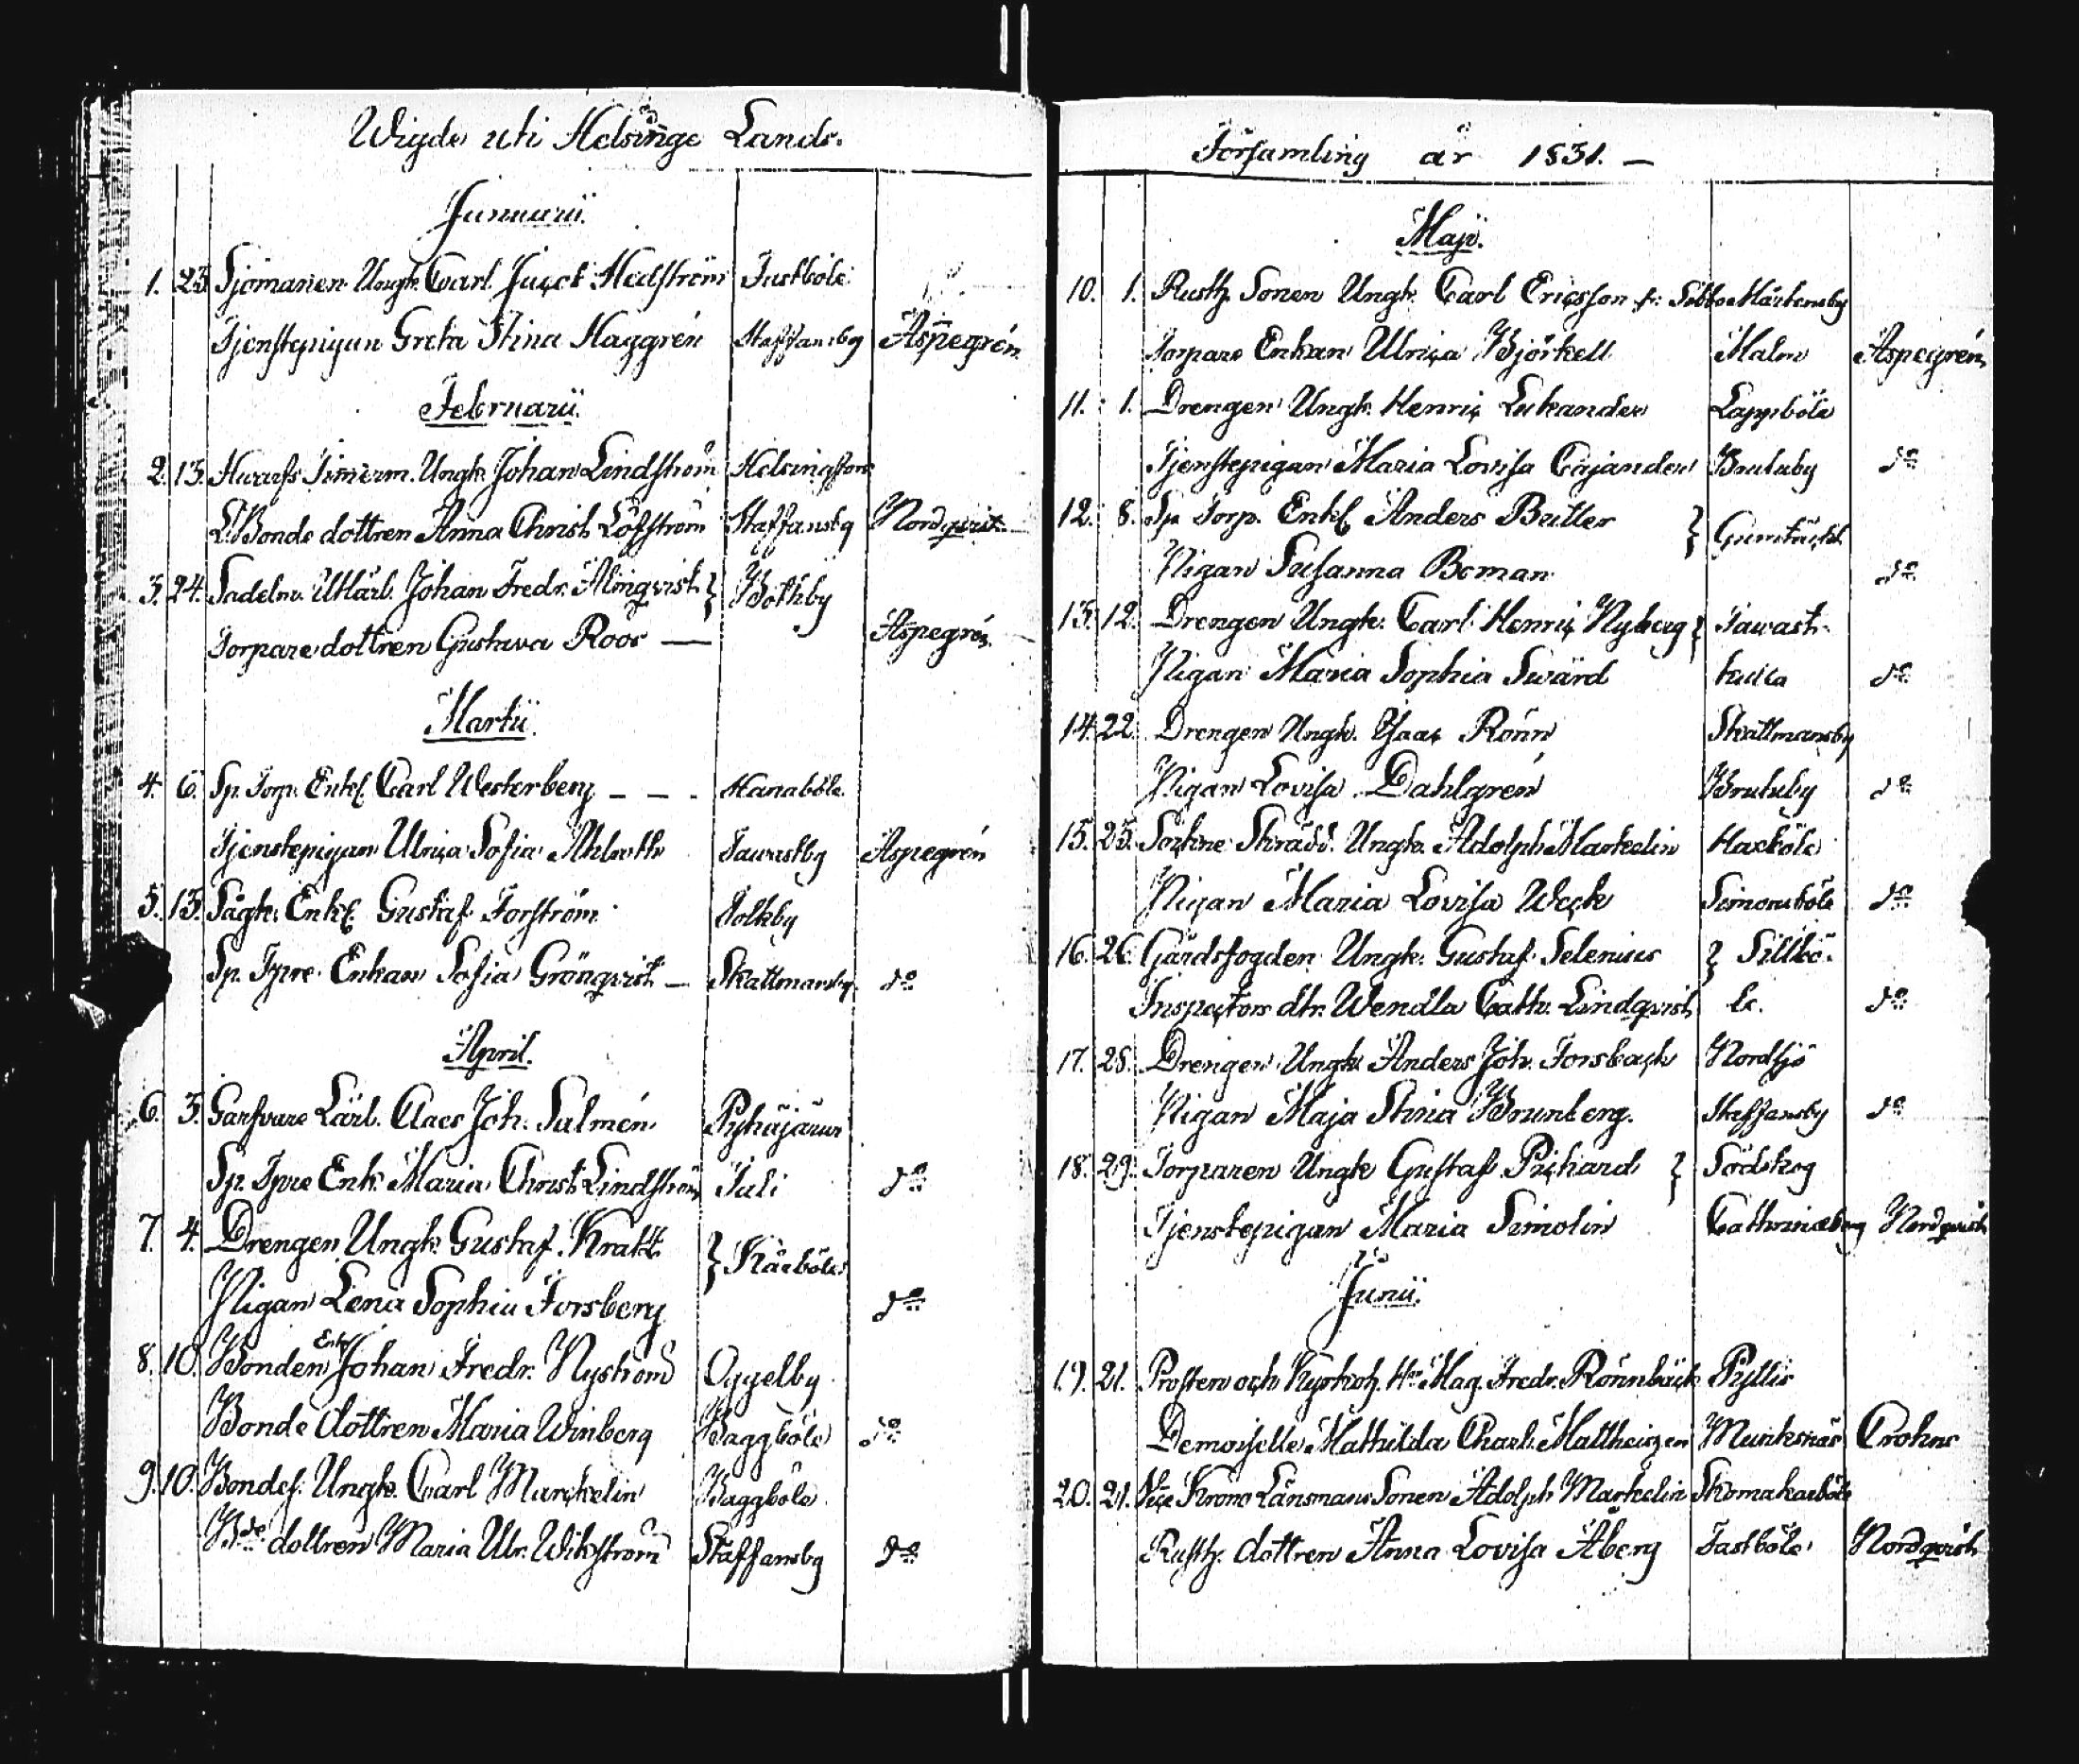 Wigde uti Helsinge Lands-
Januarii.
1. 23. Sjömannen Ungk. Carl Jacob Hedström Tastböle
Tjenstepigan Greta Stina Haggrén Staffansby Aspegrén
Februarii.
2. 13. Hwarfs Timerm. Ungk. Johan Lindström Helsingfors
Bonde dottren Anna Christ. Löfström Staffansby Nordqvist
3. 24. Sadelm. Johan Fredr. Almqvist } Bothby
Torpare dottren Gustava Roos — Aspegrén
Martii.
4. 6. Sp. Torp. Enkl. Carl Westerberg _ _ . Hanaböle.
Tjenstepigan Ulrica Sofia Tawastby Aspegrén
5. 13. Sågk. Enkl. Gustaf Forström Tolkby
Sp. Tpre Enkan Sofia Grönqvist _ Skattmansby do
April.
6. 3. Garfvare Lärl. Claes Joh. Salmén Pyhäjärvi
Sp. Tpre Enk. Maria Christ. Lindström Tali do
7. 4. Drengen Ungk. Gustaf Kratt } Kårböle
Pigan Lena Sophia Forsberg do
8. 10. Bonden Enkl. Johan Fredr. Nyström Oggelby
Bonde dottren Maria Winberg Baggböle do
9. 10. Bondes. Ungk. Carl Marckelin Baggböle
Bde dottren Maria Ulr. Wikström Staffansby do
Församling år 1831. —
Maji.
10. 1. Rusth. Sonen Ungk. Carl Ericsson fr. Sibbo Mårtensby
Torpare Enkan Ulrica Björkell Malm Aspegrén
11. 1. Drengen Ungk. Henric Lukander Lappböle
Tjenstepigan Maria Lovisa Cajander Brutuby do
12. 8. Sp. Torp. Enkl. Anders Butler } Gumtäckt
Pigan Susanna Boman do
13. 12. Drengen Ungk. Carl Henric Nyberg } Tawast-
Pigan Maria Sophia Swärd kulla do
14. 22. Drengen Ungk. Isaac Rönn Skattmansby
Pigan Lovisa Dahlgrén Brutuby do
15. 25. Sockne Skrädd. Ungk. Adolph Markelin Haxböle
Pigan Maria Lovisa Weck Simonsböle do
16. 26. Gårdsfogden Ungk. Gustaf Selenius } Sillbö-
Inspectors dtr. Wendla Cath. Lindqvist le. do
17. 28. Drengen Ungk. Anders Joh. Forsback Nordsjö
Pigan Maja Stina Brunberg. Staffansby do
18. 29. Torparen Ungk. Gustaf Pichard } Södskog
Tjenstepigan Maria Simolin Cathrineberg Nordqvist
Junii.
19. 21. Prosten och Kyrkoh. Hr Mag. Fredr. Rönnbäck Pyttis
Demoiselle Mathilda Charl. Mattheiszen Munksnäs Crohns
20. 21. Vice Krono Länsmans Sonen Adolph Markelin Skomakarböle
Rusth. dottren Anna Lovisa Åberg Tastböle Nordqvist